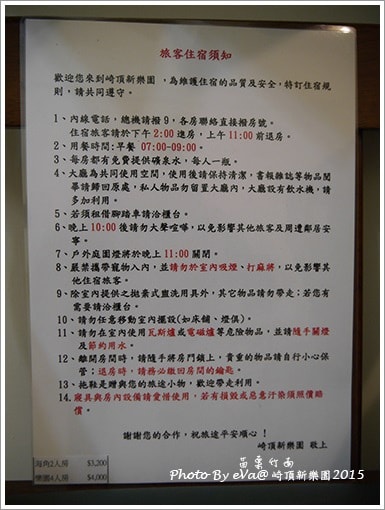 旅客住宿須知
歡迎您來到崎頂新樂園，為維護住宿的品質及安全，特訂住宿規
則，請共同遵守。
1、內線電話，總機請撥9，各房聯絡直接撥房號。
住宿旅客請於下午2:00進房，上午11:00前退房。
2、用餐時間:早餐 07:00-09:00。
3、每房都有免費提供礦泉水，每人一瓶。
4、大廳為共同使用空間，使用後請保持清潔，書報雜誌等物品閱
畢請歸回原處，私人物品勿留置大廳內，大廳設有飲水機，請
多加利用。
5、若須租借腳踏車請洽櫃台。
6、晚上10:00後請勿大聲喧嘩，以免影響其他旅客及周邊鄰居安
寧。
7、戶外庭園燈將於晚上11:00關閉。
8、嚴禁攜帶寵物入內，並請勿於室內吸煙、打麻將，以免影響其
他住宿旅客。
9、除室內提供之拋棄式盥洗用具外，其它物品請勿帶走；若您有
需要請洽櫃台。
10、請勿任意移動室內擺設(如床舖、燈俱)。
11、請勿在室內使用瓦斯爐或電磁爐等危險物品，並請隨手關燈
及節約用水。
12、離開房間時，請隨手將房門鎖上，貴重的物品請自行小心保
管；退房時，請務必繳回房間的鑰匙。
13、拖鞋是贈與您的旅途小物，歡迎帶走利用。
14、寢具與房內設備請愛惜使用，若有損毀或惡意汙染須照價賠
償。
謝謝您的合作，祝旅途平安順心！
崎頂新樂園 敬上
海角2人房 $3,200
樂園4人房 $4,000
苗栗竹南
Photo By eVa@崎頂新樂園2015